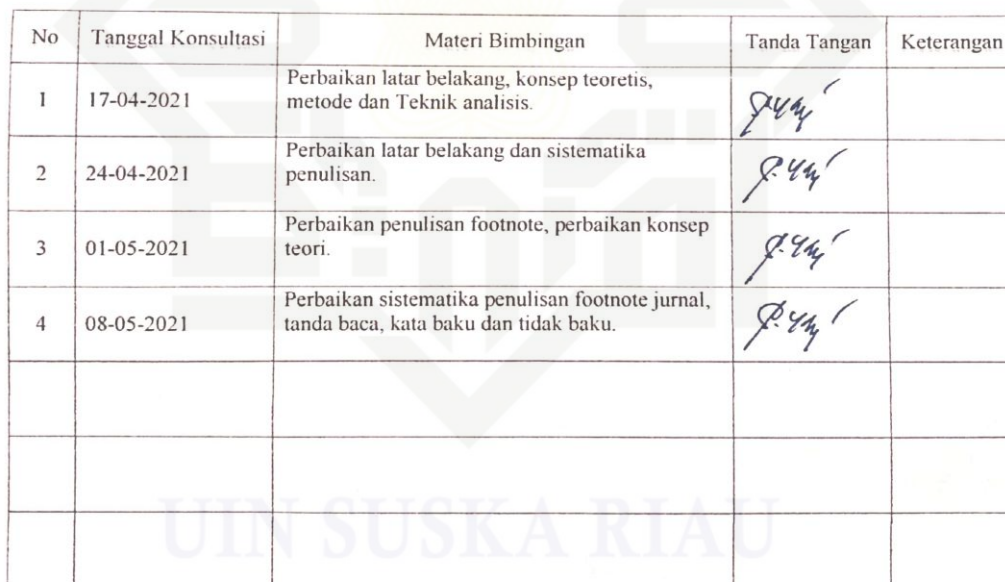 No Tanggal Konsultasi Materi Bimbingan Tanda Tangan Keterangan
1 17-04-2021 Perbaikan latar belakang, konsep teoretis,
metode dan Teknik analisis.
2 24-04-2021 Perbaikan latar belakang dan sistematika
penulisan.
3 01-05-2021 Perbaikan penulisan footnote, perbaikan konsep
teori.
4 08-05-2021 Perbaikan sistematika penulisan footnote jurnal,
tanda baca, kata baku dan tidak baku.
UIN SUSKA RIAU